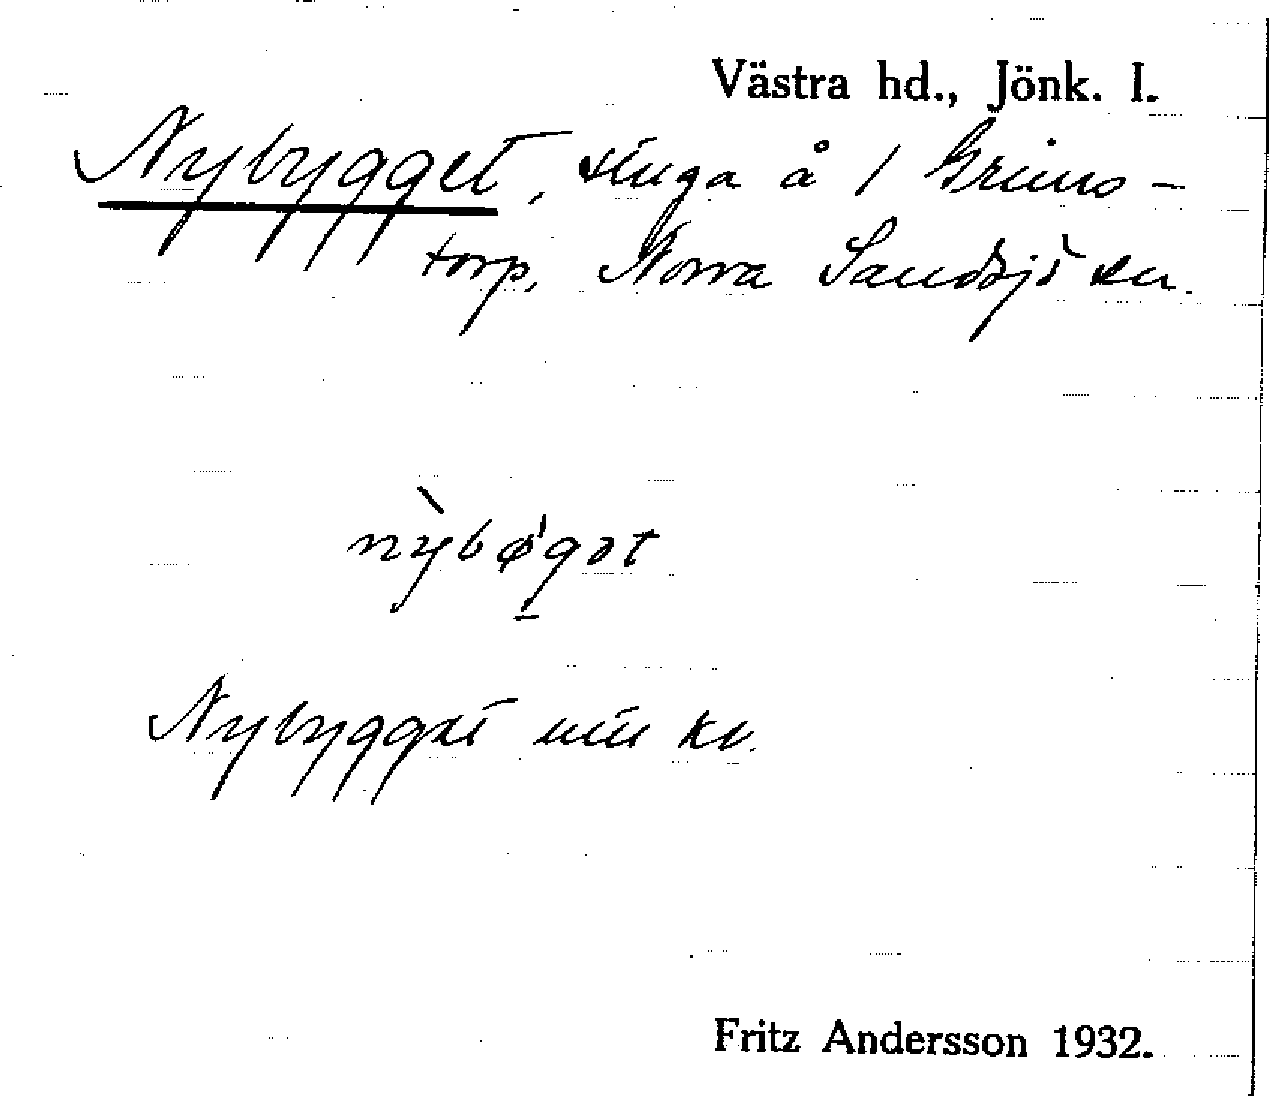 Västra hd., Jönk. l.
Nybygget, stuga å / Grims-
torp, Norra Sandsjö sn.
nỳbø̀gət
Nybygget kv.
Fritz Andersson 1932.